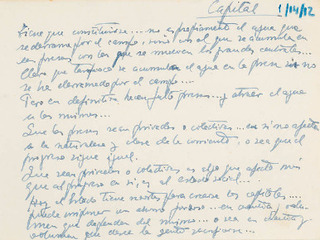 Capital
1/14/12
Tiene que constituirse.... no es propiamente el agua que
se derrama por el campo, sino la del que se acumula en
las presas con las que se mueven las grandes centrales...
Claro que tampoco se acumula el agua en la presa si no
se ha derramado por el campo....
Pero en definitiva hacen falta presas... y atraer el agua
a las mismas...
Que las presas sean privadas o colectivas.. en sí no afecta
a la naturaleza y clase de la corriente, o sea que el
progreso sigue igual.
Que sean privadas o colectivas es algo que afecta más
que al progreso en sí, es al orden social.
Hoy el Estado tiene para crear los capitales....
puede imponer un ahorro forzoso.. en cuantía y volu-
men que dependen del mismo... o sea en cuantía y
volumen que desde la gente